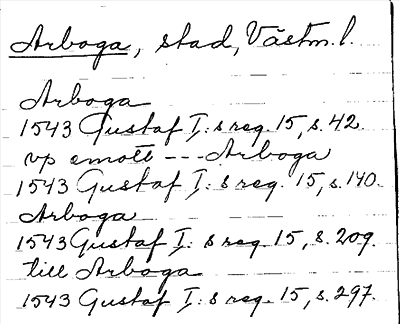 Arboga, stad, Västm. l.
Arboga
1543 Gustaf I:s reg. 15, s. 42.
vp emott --- Arboga
1543 Gustaf I:s reg. 15, s. 140.
Arboga
1543 Gustaf I:s reg. 15, s. 209.
till Arboga
1543 Gustaf I:s reg. 15, s. 297.